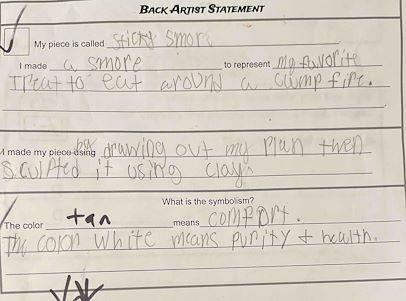 BACK ARTIST STATEMENT
My piece is called sticky smore
I made a smore to represent my favorite
Treat to eat around a camp fire.
I made my piece using by drawing out my Plan then
Sculpted it using clay.
What is the symbolism?
The color tan means comfort.
The color white means purity + health.